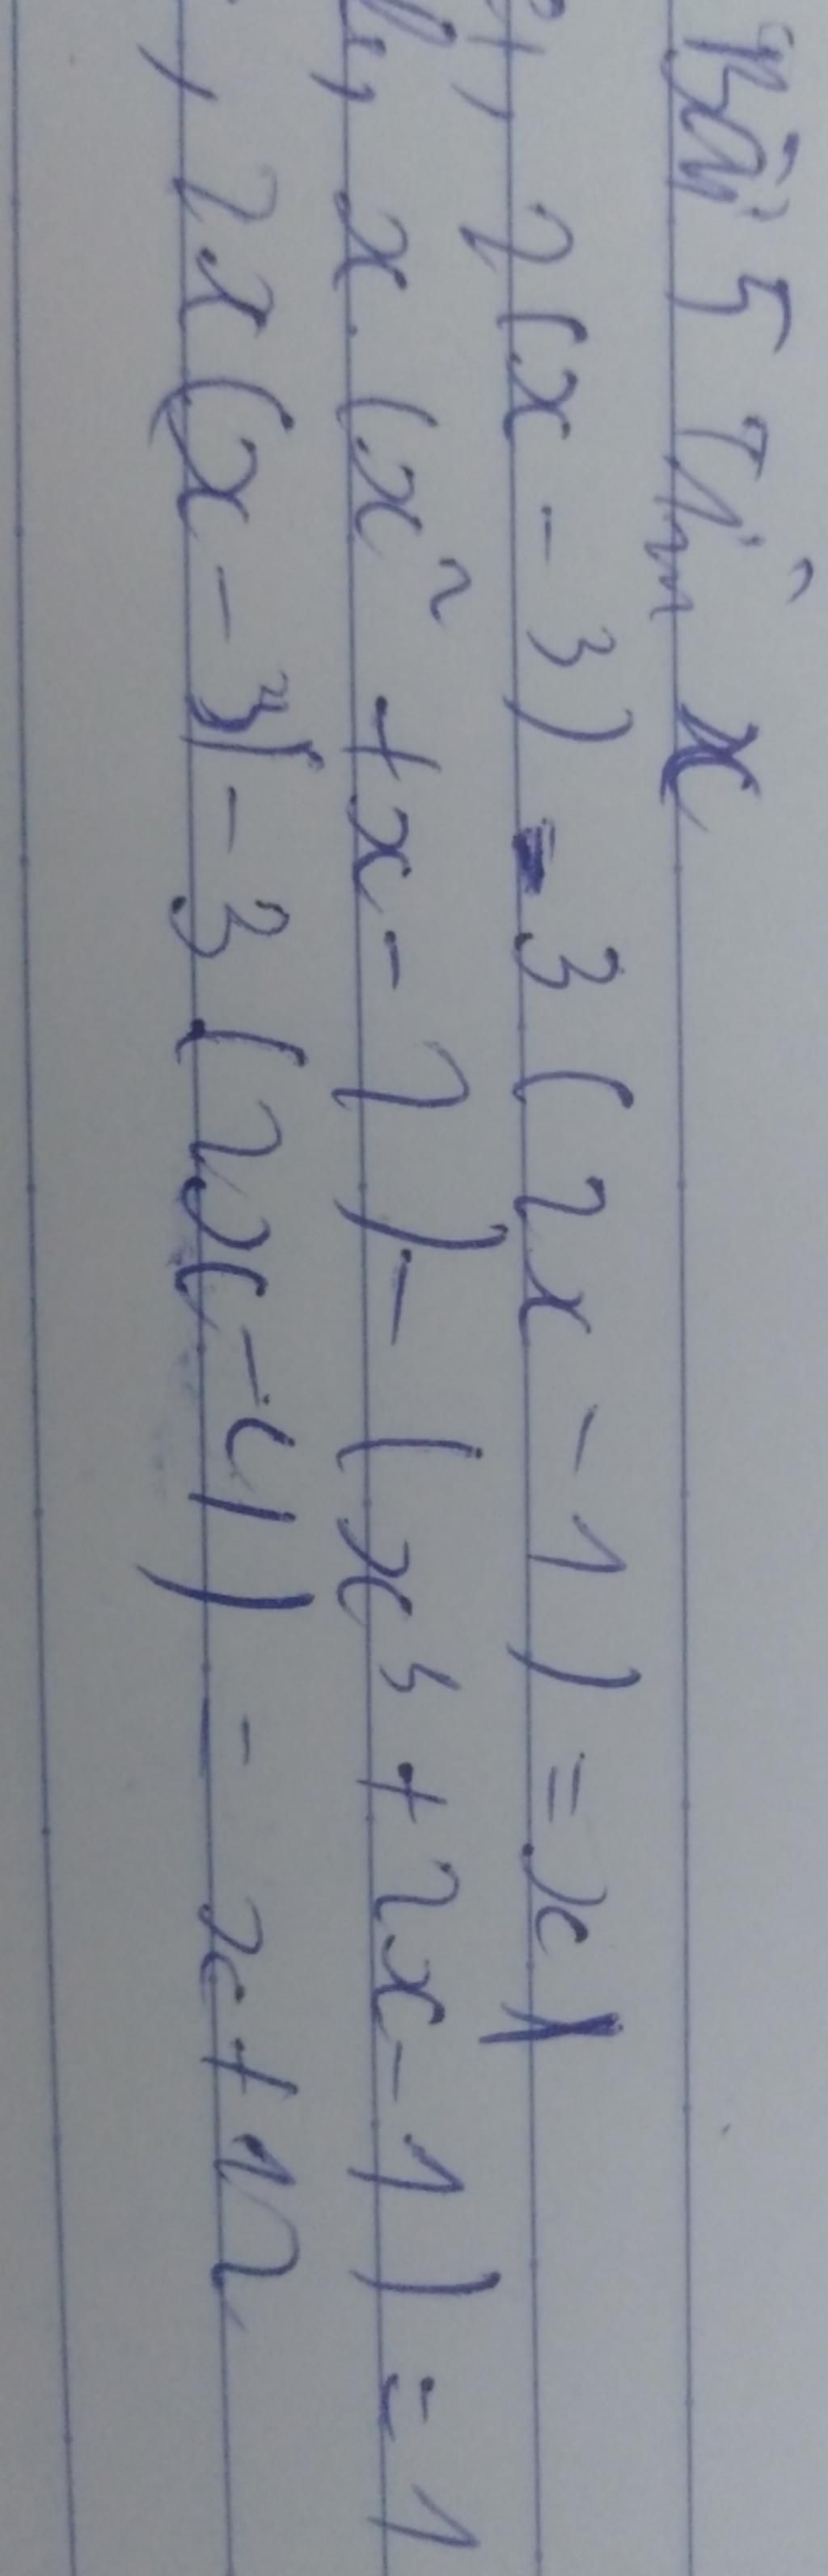 Bài 5 Tìm x
2(x - 3) - 3(2x - 1) = x
b, x.(x² + x - 2) - (x³ + 2x - 1) = 1
, 2x(x - 3) - 3(2x - 4) - x + 12